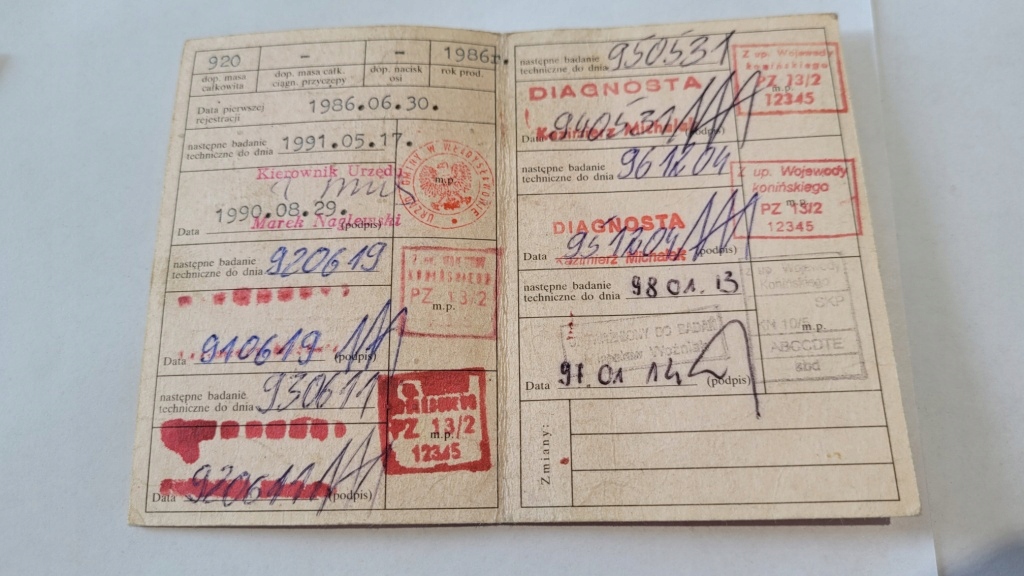 920
–
–
1986r.
dop. masa
całkowita
dop. masa całk.
ciągn. przyczepy
dop. nacisk
osi
rok prod.
Data pierwszej
rejestracji
1986.06.30.
następne badanie
techniczne do dnia
1991.05.17.
Kierownik Urzędu
m.p.
URZĄD GMINY W
1990.08.29.
Marek Naglewski
Data
(podpis)
następne badanie
techniczne do dnia
920619
PZ 13/2
m.p.
Data
910619
(podpis)
następne badanie
techniczne do dnia
930611
PZ 13/2
m.p.
12345
Data
920611
(podpis)
następne badanie
techniczne do dnia
950531
Z up. Wojewody
konińskiego
PZ 13/2
m.p.
12345
DIAGNOSTA
Kazimierz Michalak
Data
940531
(podpis)
następne badanie
techniczne do dnia
961204
Z up. Wojewody
konińskiego
m.p.
PZ 13/2
12345
DIAGNOSTA
Kazimierz Michalak
Data
951204
(podpis)
następne badanie
techniczne do dnia
98 01. 13
Z up. Wojewody
Konińskiego
SKP
KN 10/5
m.p.
ABCCDTE
DO BADAŃ
Woźniak
Data
97.01 14
(podpis)
Zmiany: